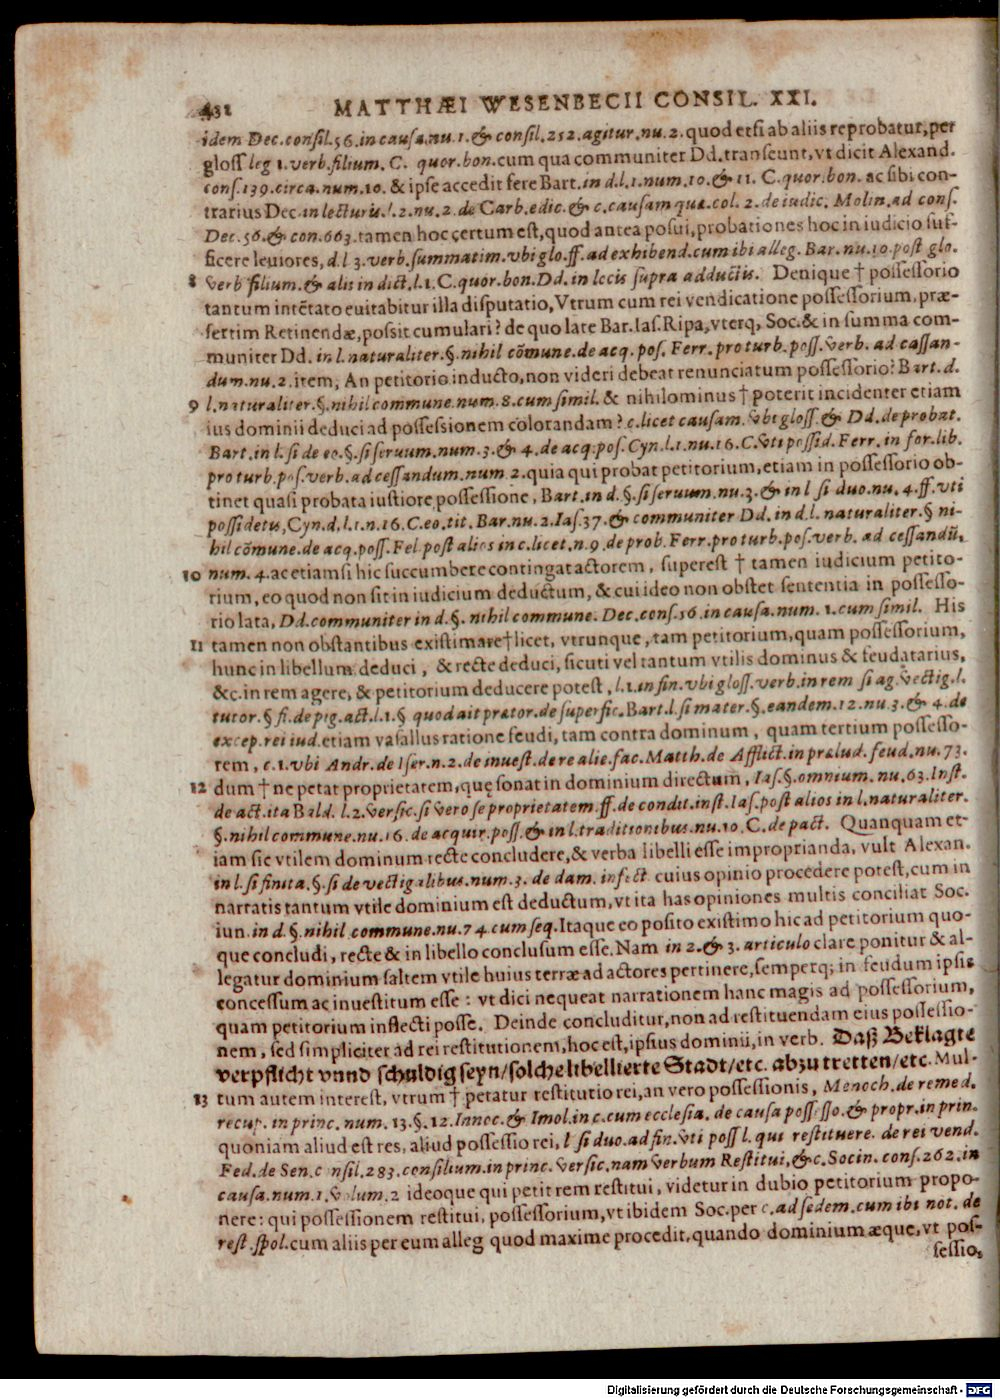 432 MATTHÆI WESENBECII CONSIL. XXI.
idem Dec. consil. 56. in causa. nu. 1. & consil. 252. agitur. nu. 2. quod etsi ab aliis reprobatur, per
gloss leg 1. verb. filium. C. quor. bon. cum qua communiter Dd. transeunt, vt dicit Alexand.
cons. 139. circa. num. 10. & ipse accedit fere Bart. in d. l. 1. num. 10. & 11. C. quor. bon. ac sibi con-
trarius Dec. in lecturis. l. 2. nu. 2. de Carb. edic. & c. causam quæ. col. 2. de iudic. Molin. ad cons.
Dec. 56. & con. 663. tamen hoc certum est, quod antea posui, probationes hoc in iudicio suf-
ficere leuiores, d. l 3. verb. summatim. vbi glo. ff. ad exhibend. cum ibi alleg. Bar. nu. 10. post glo.
8 verb filium. & aliis in dict. l. 1. C. quor. bon. Dd. in locis supra adductis. Denique † possessorio
tantum intētato euitabitur illa disputatio, Vtrum cum rei vendicatione possessorium, præ-
sertim Retinendæ, possit cumulari? de quo late Bar. Ias. Ripa, vterq; Soc. & in summa com-
muniter Dd. in l. naturaliter. §. nihil cōmune. de acq. pos. Ferr. pro turb. poss. verb. ad cassan-
dum. nu. 2. item, An petitorio inducto, non videri debeat renunciatum possessorio? Bart. d.
9 l. naturaliter. §. nihil commune. num. 8. cum simil. & nihilominus † poterit incidenter etiam
ius dominii deduci ad possessionem colorandam? c. licet causam. vbi gloss. & Dd. de probat.
Bart. in l. si de eo. §. si seruum. num. 3. & 4. de acq. pos. Cyn. l. 1. nu. 16. C. vti possid. Ferr. in for. lib.
pro turb. pos. verb. ad cessandum. num. 2. quia qui probat petitorium, etiam in possessorio ob-
tinet quasi probata iustiore possessione, Bart. in d. §. si seruum. nu. 3. & in l si duo. nu. 4. ff. vti
possidetis, Cyn. d. l. 1. n. 16. C. eo. tit. Bar. nu. 2. Ias. 37. & communiter Dd. in d. l. naturaliter. § ni-
hil cōmune. de acq. poss. Fel post alios in c. licet. n. 9. de prob. Ferr. pro turb. pos. verb. ad cessandū,
10 num. 4. ac etiamsi hic succumbere contingat actorem, superest † tamen iudicium petito-
rium, eo quod non sit in iudicium deductum, & cui ideo non obstet sententia in possesso-
rio lata, Dd. communiter in d. §. nihil commune. Dec. cons. 56. in causa. num. 1. cum simil. His
11 tamen non obstantibus existimare † licet, vtrunque, tam petitorium, quam possessorium,
hunc in libellum deduci, & recte deduci, sicuti vel tantum vtilis dominus & feudatarius,
&c. in rem agere, & petitorium deducere potest, l. 1. in fin. vbi gloss. verb. in rem si ag. vectig. l.
tutor. § fi. de pig. act. l. 1. § quod ait prætor. de superfic. Bart. l. si mater. §. eandem. 12. nu. 3. & 4. de
excep. rei iud. etiam vasallus ratione feudi, tam contra dominum, quam tertium possesso-
rem, c. 1. vbi Andr. de Iser. n. 2. de inuest. de re alie. fac. Matth. de Afflict. in prælud. feud. nu. 73.
12 dum † ne petat proprietatem, quę sonat in dominium directum, Ias. §. omnium. nu. 63. Inst.
de act. ita Bald. l. 2. versic. si vero se proprietatem. ff. de condit. inst. Ias. post alios in l. naturaliter.
§. nihil commune. nu. 16. de acquir. poss. & in l. traditionibus. nu. 10. C. de pact. Quanquam et-
iam sic vtilem dominum recte concludere, & verba libelli esse improprianda, vult Alexan.
in l. si finita. §. si de vectigalibus. num. 3. de dam. infect. cuius opinio procedere potest, cum in
narratis tantum vtile dominium est deductum, vt ita has opiniones multis conciliat Soc.
iun. in d. §. nihil commune. nu. 74. cum seq. Itaque eo posito existimo hic ad petitorium quo-
que concludi, recte & in libello conclusum esse. Nam in 2. & 3. articulo clare ponitur & al-
legatur dominium saltem vtile huius terræ ad actores pertinere, semperq; in feudum ipsis
concessum ac inuestitum esse: vt dici nequeat narrationem hanc magis ad possessorium,
quam petitorium inflecti posse. Deinde concluditur, non ad restituendam eius possessio-
nem, sed simpliciter ad rei restitutionem, hoc est, ipsius dominii, in verb. Daß Beklagte
verpflicht vnnd schuldig seyn/ solche libellierte Stadt/ etc. abzutretten/ etc. Mul-
13 tum autem interest, vtrum † petatur restitutio rei, an vero possessionis, Menoch. de remed.
recup. in princ. num. 13. §. 12. Innoc. & Imol. in c. cum ecclesia. de causa possesso. & propr. in prin.
quoniam aliud est res, aliud possessio rei, l si duo. ad fin. vti poss l. qui restituere. de rei vend.
Fed. de Sen. consil. 283. consilium. in princ. versic. nam verbum Restitui, & c. Socin. cons. 262. in
causa. num. 1. volum. 2 ideoque qui petit rem restitui, videtur in dubio petitorium propo-
nere: qui possessionem restitui, possessorium, vt ibidem Soc. per c. ad sedem. cum ibi not. de
rest. spol. cum aliis per eum alleg quod maxime procedit, quando dominium æque, vt pos-
sessio,
Digitalisierung gefördert durch die Deutsche Forschungsgemeinschaft - DFG